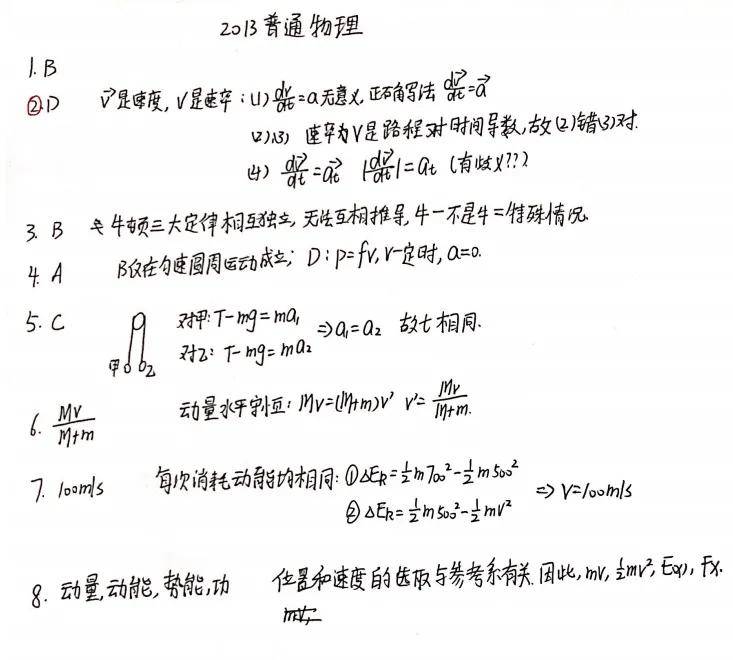 2013普通物理
1. B
② D  v⃗是速度, v是速率: (1) dv/dt=a无意义, 正确写法 dv⃗/dt=a⃗
(2)(3) 速率为v是路程对时间导数, 故(2)错(3)对.
(4) dv⃗/dt=a⃗t |dv⃗/dt|=at (有歧义??)
3. B 牛顿三大定律相互独立, 无法互相推导, 牛一不是牛二特殊情况.
4. A B仅在匀速圆周运动成立; D: p=fv, v一定时, a=0.
5. C 对甲: T-mg=ma₁ ⇒a₁=a₂ 故t相同.
甲 乙 对乙: T-mg=ma₂
6. Mv/M+m 动量水平守恒: Mv=(M+m)v' v'=Mv/M+m.
7. 100m/s 每次消耗动能均相同: ①ΔEk=½m700²-½m500²
②ΔEk=½m500²-½mv² ⇒ v=100m/s
8. 动量, 动能, 势能, 功 位置和速度的选取与参考系有关. 因此, mv, ½mv², E(x), Fx.
mv,